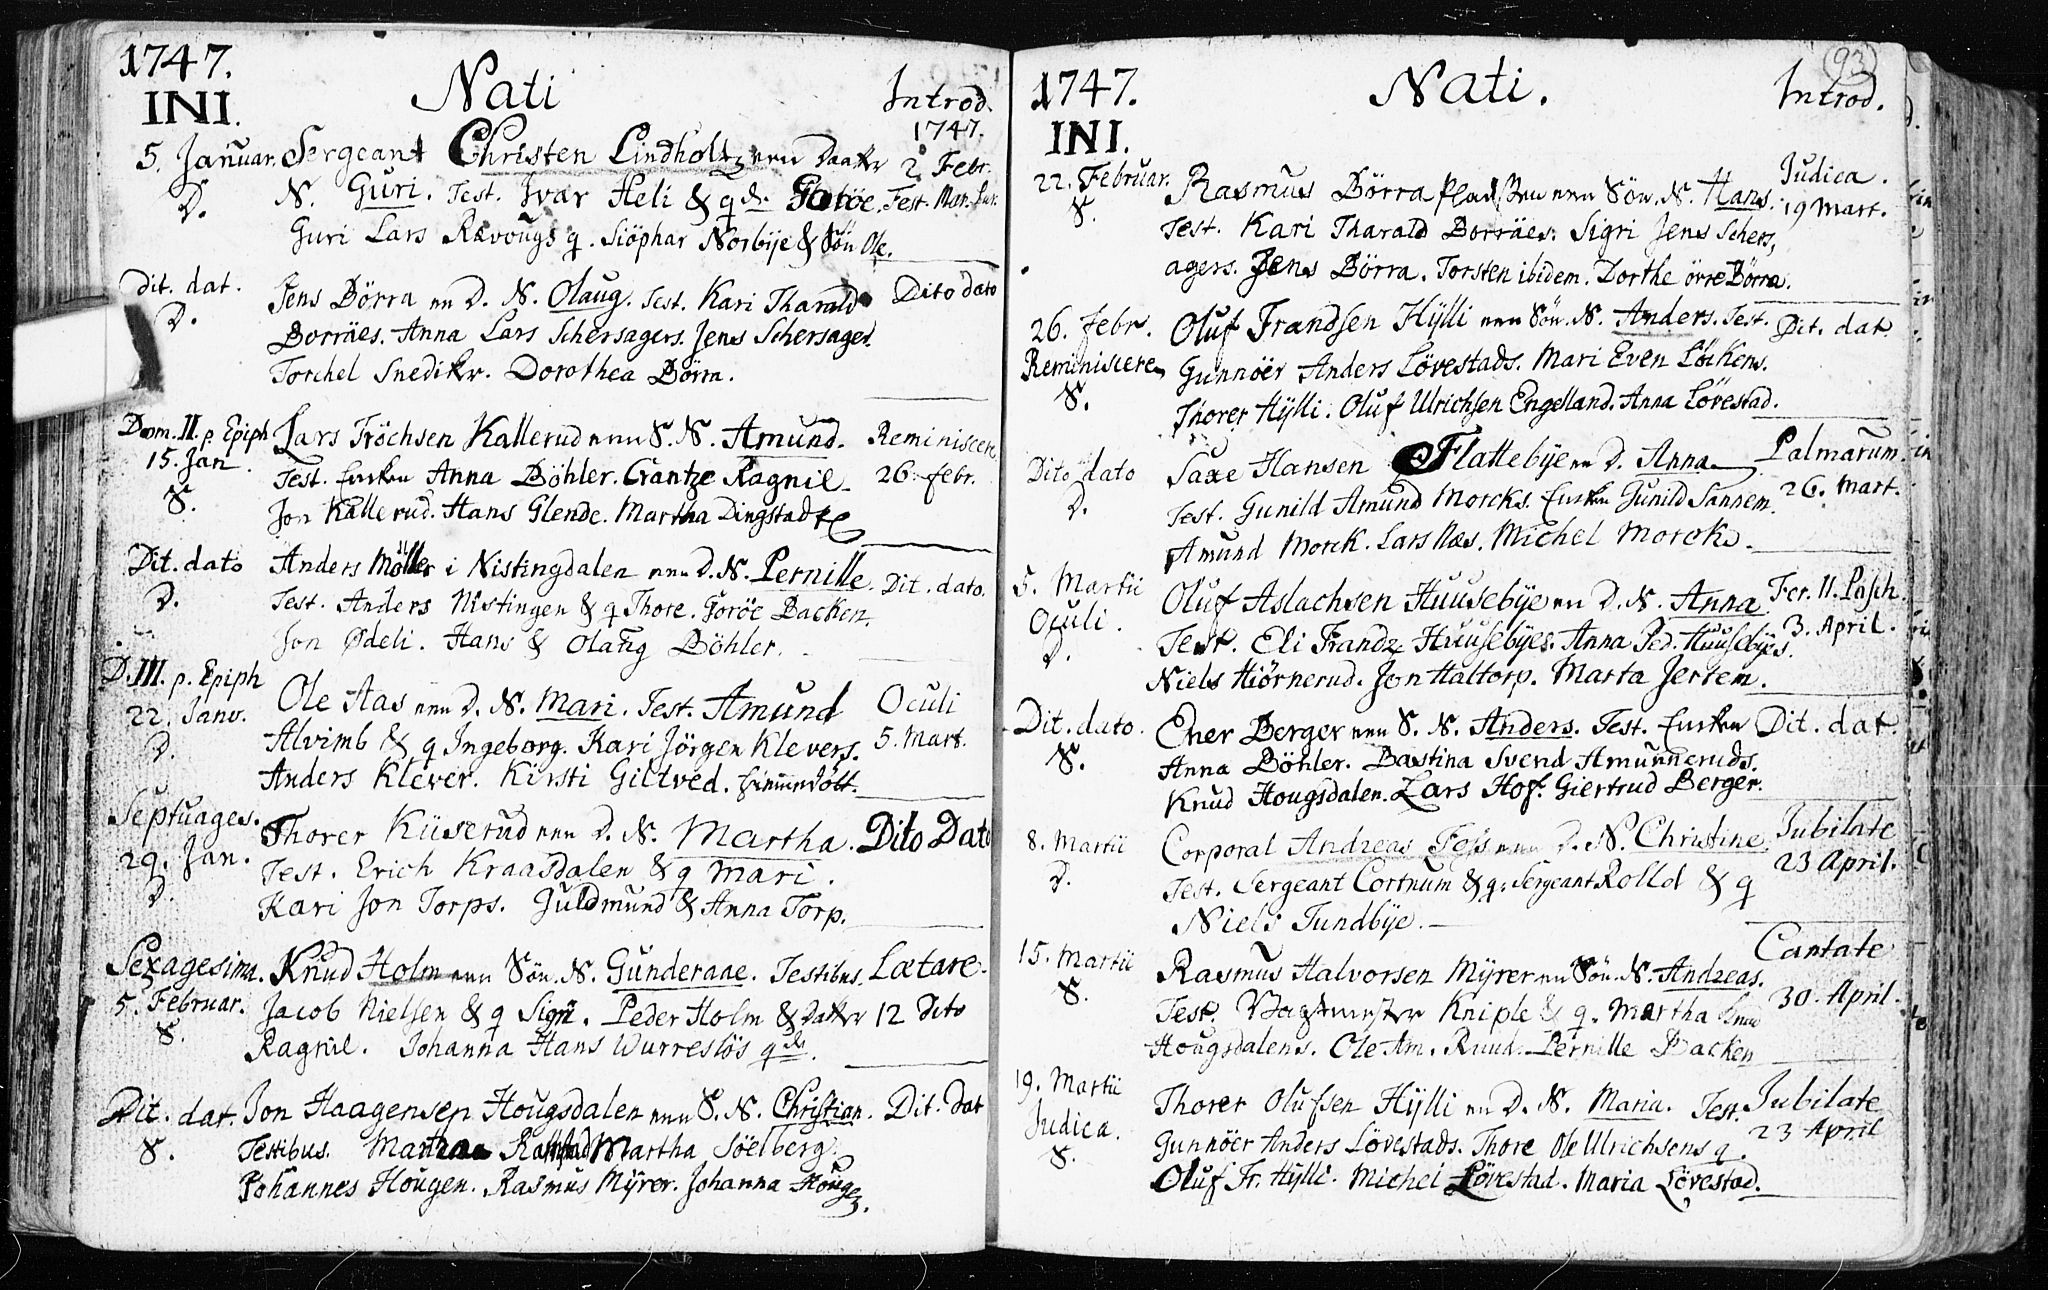 1747.
INI.
Nati
Introd.
1747.
5. Januar. Sergeant Christen Lindholtz
2. Febr.
D.
N. Guri. Test. Ivar Heli & q
Fest. Mar. Pur.
Guri Lars Rævougs q. Siöphar Norbÿe & Sön Ole.
Dit. dat.
D.
Jens Börra en D. N. Olaug. Test. Kari Tharald
Dito dato
Borräes. Anna Lars Schersagers. Jens Schersager.
Torchel Snedikr. Dorothea Börra.
Dom. II. p. Epiph
15. Jan.
S.
Lars Tröchsen Kallerud enn S. N. Amund.
Reminiscere
26. febr.
Test. Anna Böhler. Crantze Ragnil.
Jon Kallerud. Hans Glende. Martha Dingstad
Dit. dato
D.
Anders Möller i Nistingdalen enn D. N. Pernille.
Dit. dato.
Test. Anders Nistingen & q Thore. Goröe Backen.
Jon Ødeli. Hans & Olaug Böhler.
D. III. p. Epiph
22. Janv.
D.
Ole Aas enn D. N. Mari. Test. Amund
Oculi
5. Mart.
Alvimb & q Ingeborg. Kari Jörgen Klevers.
Anders Klever. Kirsti Giltved.
Septuages.
29. Jan.
D.
Thorer Küserud enn D. N. Martha.
Dito Dato
Test. Erich Kraasdalen & q Mari.
Kari Jon Torps. Juldmund & Anna Torp.
Sexagesima.
5. Februar.
S.
Knud Holm enn Sön. N. Gunderane. Testibus.
Lætare.
12 Dito
Jacob Nielsen & q Sigri. Peder Holm & Datter
Ragnil. Johanna Hans Wurreslös q
Dit. dat.
S.
Jon Haagensen Hougsdalen enn S. N. Christian.
Dit. dat
Testibus. Martha Söelberg.
Johannes Hougen. Rasmus Mÿrer. Johanna Houge
93
1747.
INI.
Nati.
Introd.
22. Februar.
S.
Rasmus Börra enn Sön. N. Hans.
Judica.
19 Mart.
Test. Kari Tharald Borräes. Sigri Jens Schers,
agers. Jens Börra. Torsten ibidem. Dorthe örre Börra.
26. febr.
Reminiscere
S.
Oluf Frandsen Hÿlli enn Sön. N. Anders. Test.
Dit. dat
Gunnöer Anders Lövestads. Mari Even Löckens.
Thorer Hÿlli. Oluf Ulrichsen Engelland. Anna Lövestad.
Dito dato
D.
Saxe Hansen Flattebÿe en D. Anna
Palmarum
26. Mart.
Test. Gunild Amund Morcks. Gunild Sannem.
Amund Morck. Lars Næs. Michel Morck.
5. Martii
Oculi.
D.
Oluf Aslachsen Huusebÿe en D. N. Anna
Fer. II. Pasch.
3. April.
Test. Eli Frandz Huusebÿes. Anna Ped. Huusebÿes.
Niels Hiörnerud. Jon Haltorp. Marta Jertem.
Dit. dato.
S.
Ener Berger enn S. N. Anders. Test.
Dit. dat.
Anna Böhler. Bastina Svend Amunneruds.
Knud Hougsdalen. Lars Hof. Giertrud Berger.
8. Martii
D.
Corporal Andreas Fess enn D. N. Christine.
Jubilate
23 April.
Test. Sergeant Cortnum & q. Sergeant Rolld & q
Niels Tundbÿe.
15. Martii
S.
Rasmus Halvorsen Mÿrer en Sön. N. Andreas.
Cantate
30. April.
Test. Kniple & q. Martha Knud
Hougsdalens. Ole Am. Ruud. Pernille Backen
19. Martii
Judica.
S.
Thorer Olufsen Hÿlli en D. N. Maria. Test.
Jubilate
23 April
Gunnöer Anders Lövestads. Thore Ole Ulrichsens q.
Oluf Fr. Hÿlli. Michel Lövestad. Maria Lövestad.